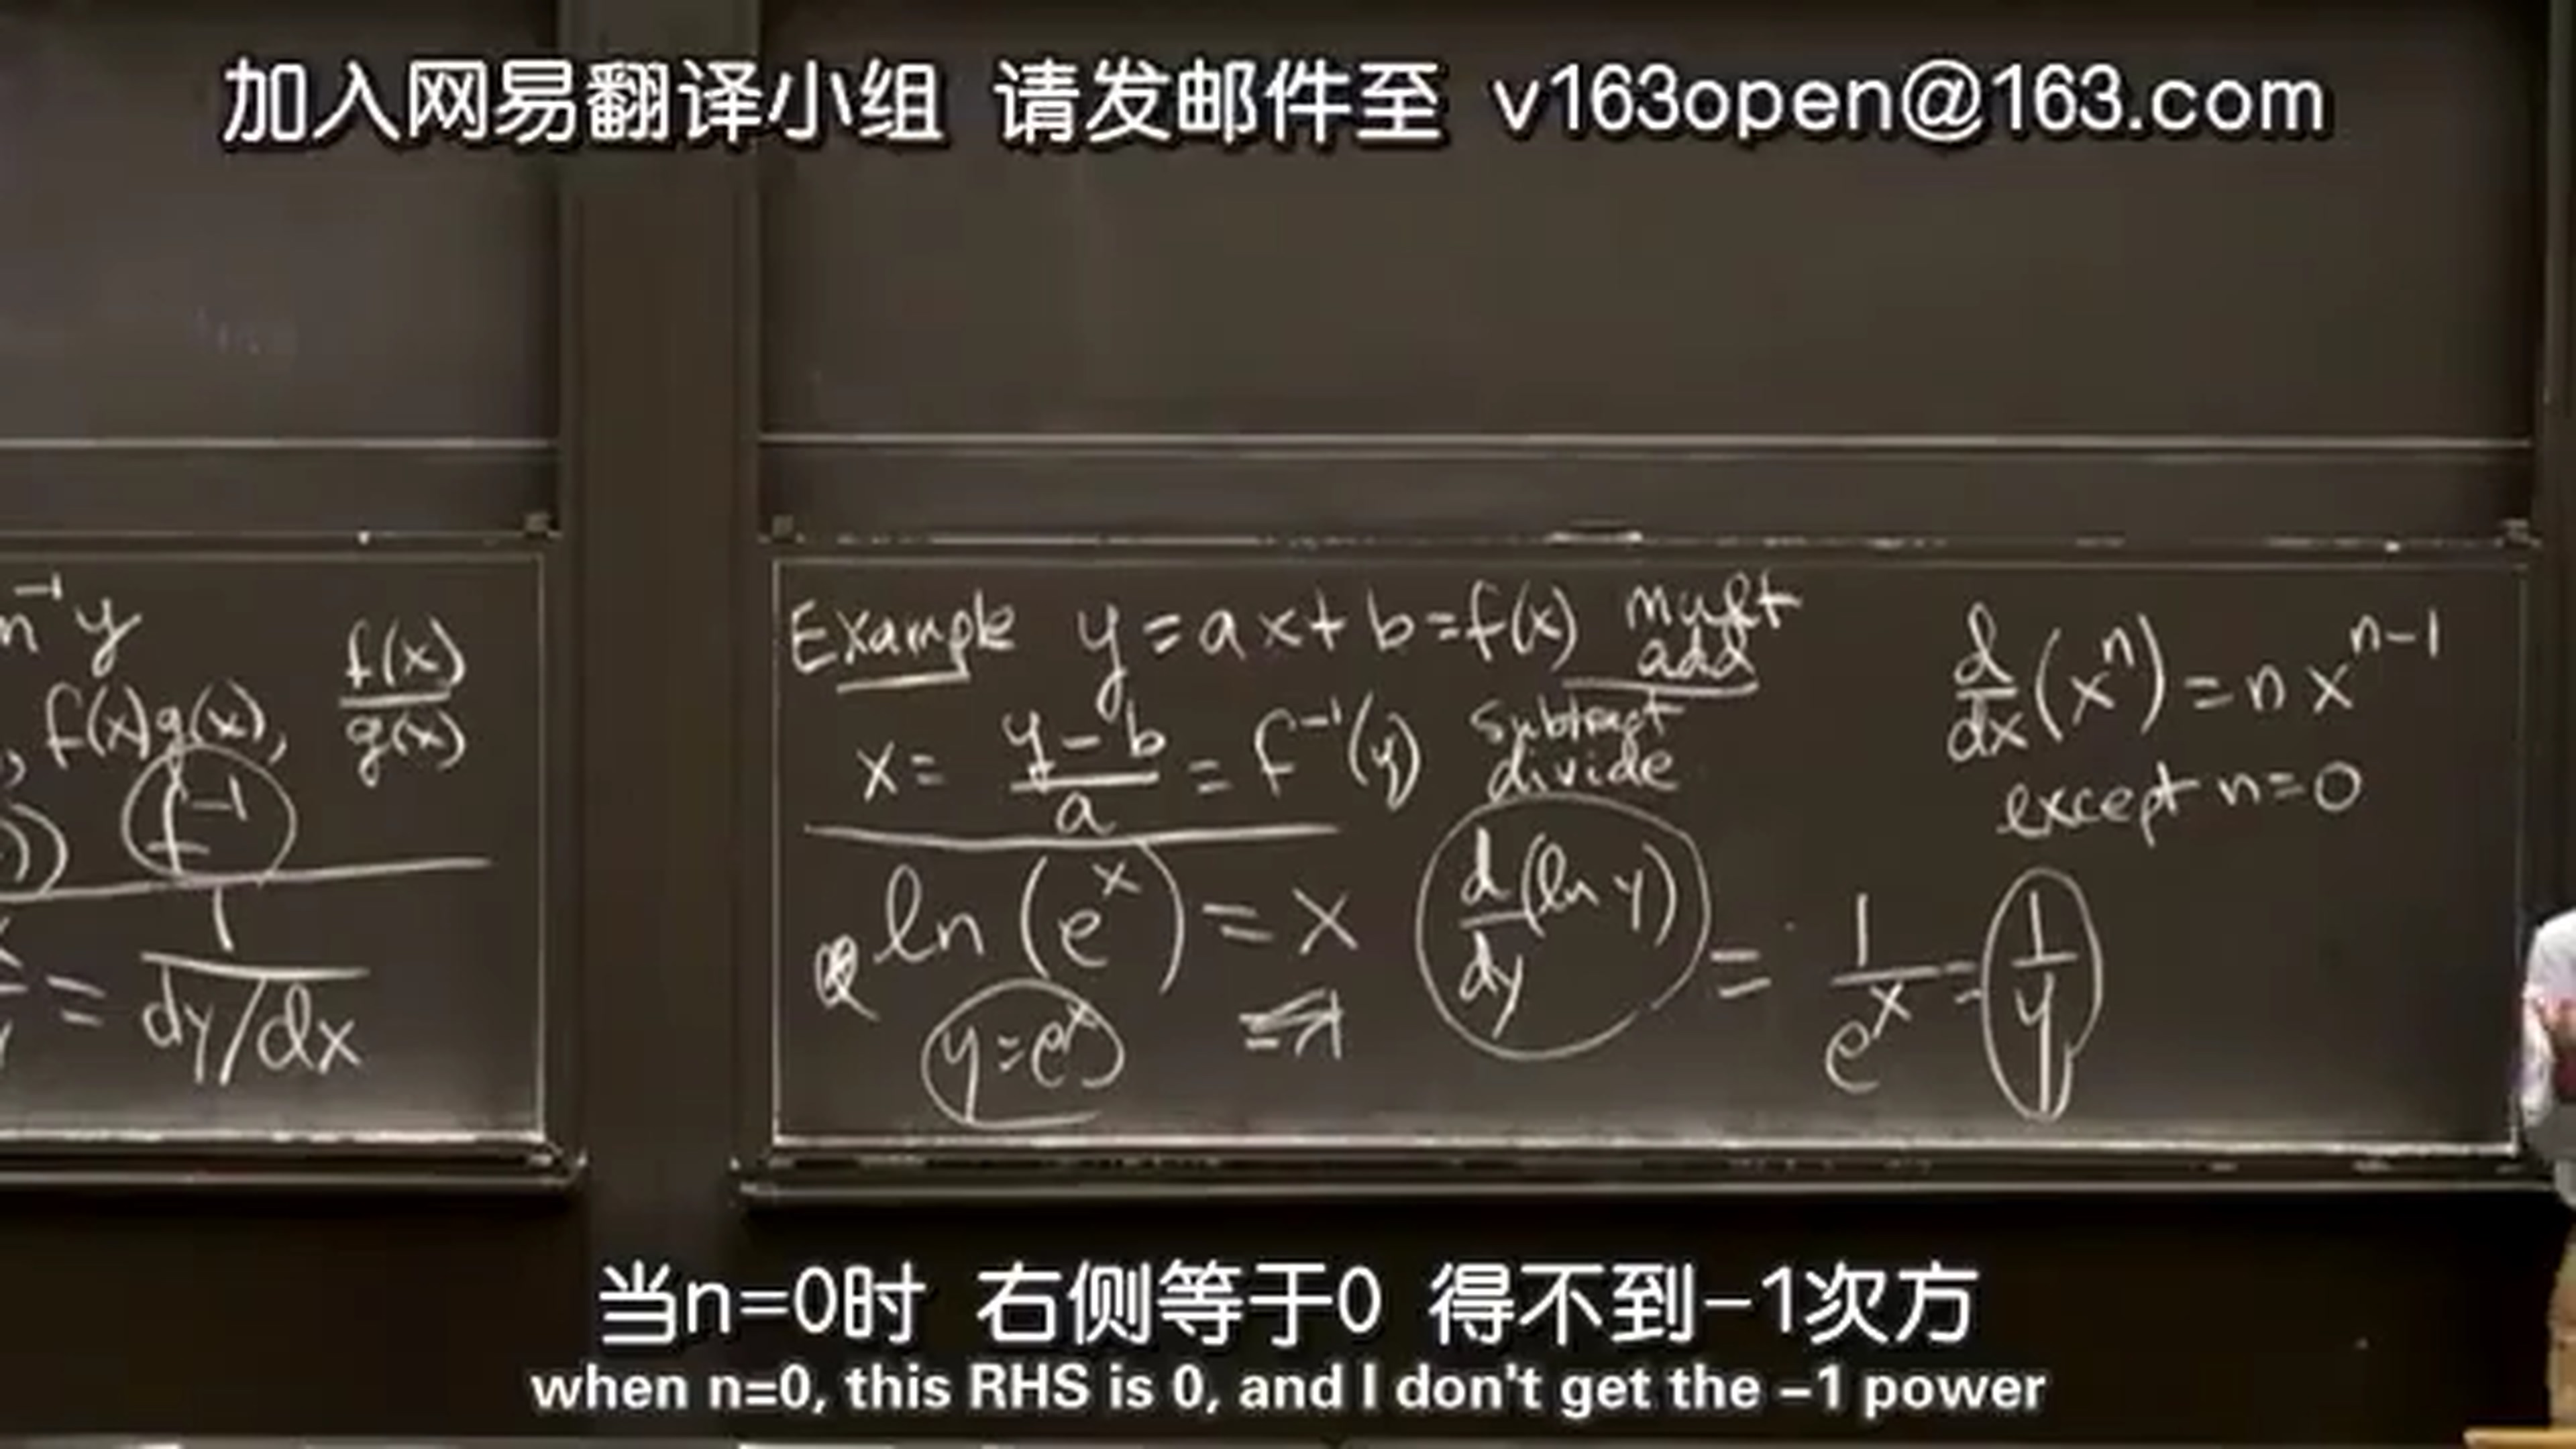 加入网易翻译小组 请发邮件至 v163open@163.com
n⁻¹ y
f(x)/g(x)
, f(x)g(x),
f⁻¹
= 1/(dy/dx)
Example y = ax + b = f(x) mult add
x = (y - b)/a = f⁻¹(y) subtract divide
ln(eˣ) = x
y = eˣ
d/dy (ln y) = 1/eˣ = 1/y
d/dx (xⁿ) = n xⁿ⁻¹
except n=0
当n=0时 右侧等于0 得不到-1次方
when n=0, this RHS is 0, and I don't get the -1 power